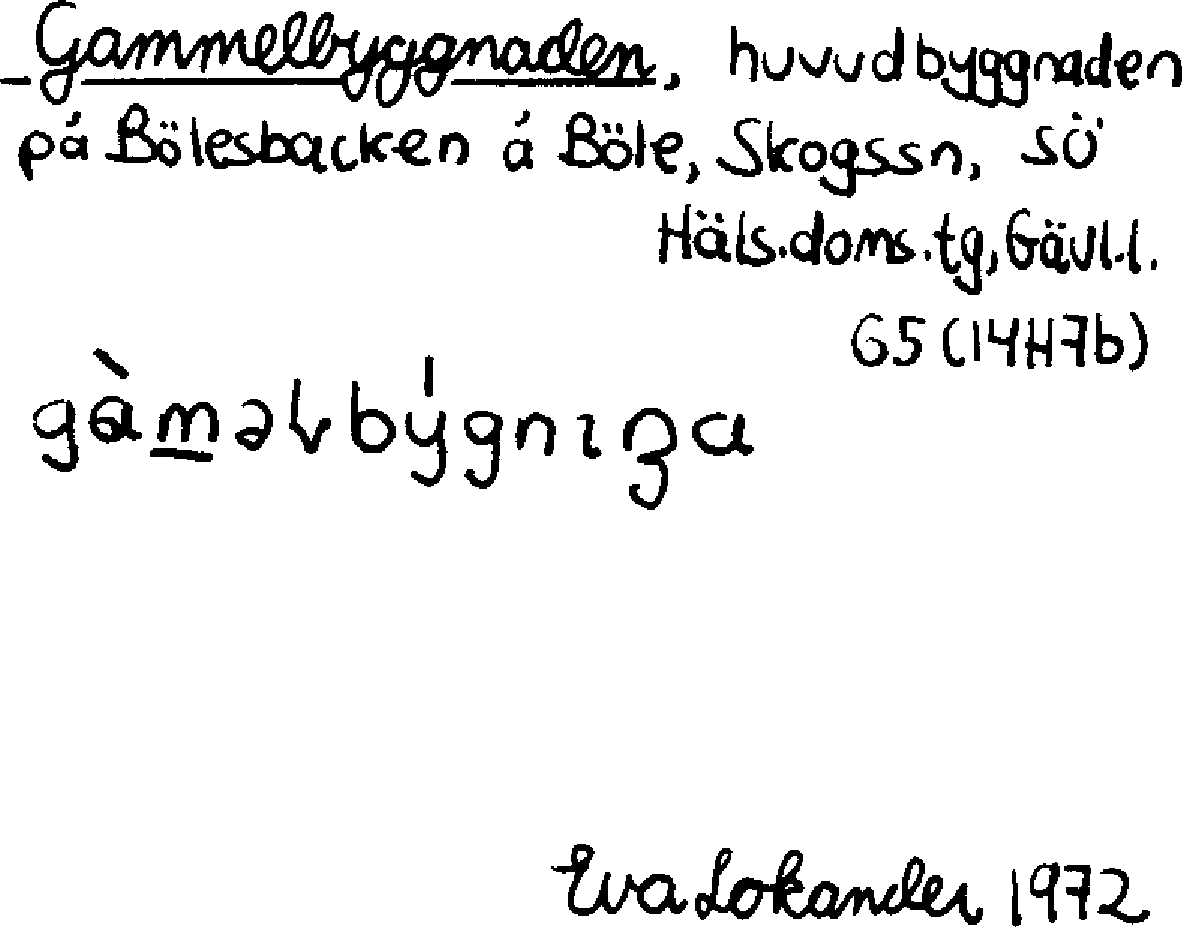 Gammelbyggnaden, huvudbyggnaden
på Bölesbacken å Böle, Skogssn, sö
Häls.doms.tg, Gävl.l.
G5 (14H7b)
Eva Lokander 1972